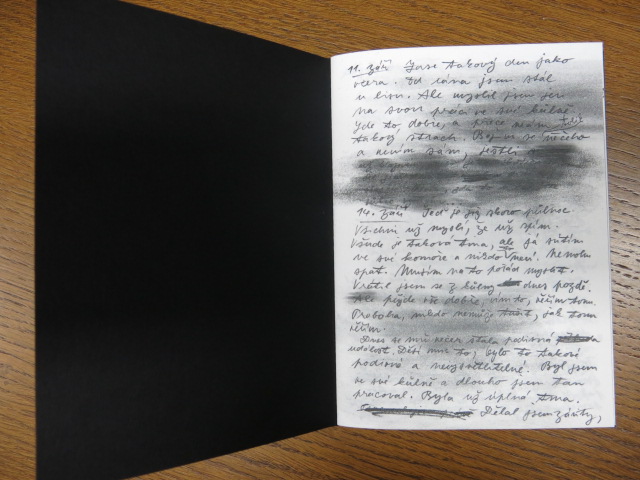 11. září Zase takový den jako
včera. Od rána jsem stál
u linu. Ale myslil jsem jen
na svou práci ve své kůlně.
Jde to dobře, a práce
takový strach. Bojím se něčeho
a nevím sám, jestli
14. září Teď je již skoro půlnoc
Všichni už myslí, že už spím.
Všude je taková tma, ale já svítím
ve své komoře a nikdo neví. Nemohu
spát. Musím na to pořád myslit.
Vrátil jsem se z kůlny dnes pozdě.
Ale půjde vše dobře, vím to, věřím tomu.
Proboha, nikdo nemůže tušit, jak tomu
věřím.
Dnes se mi večer stala podivná
událost. Děsí mne to, bylo to takové
podivné a neuvěřitelné. Byl jsem
ve své kůlně a dlouho jsem tam
pracoval. Byla už úplná tma.
Dělal jsem závity,